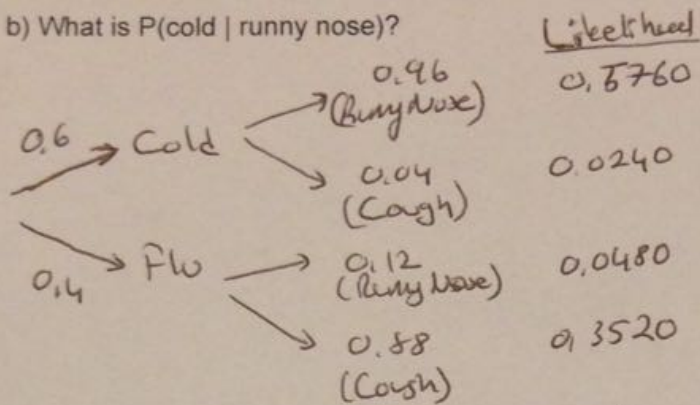 b) What is P(cold | runny nose)?
Likelihood
0.6
Cold
0.96
(Runny Nose)
0,5760
0.04
(Cough)
0.0240
0,4
Flu
0.12
(Runny Nose)
0,0480
0.88
(Cough)
0,3520